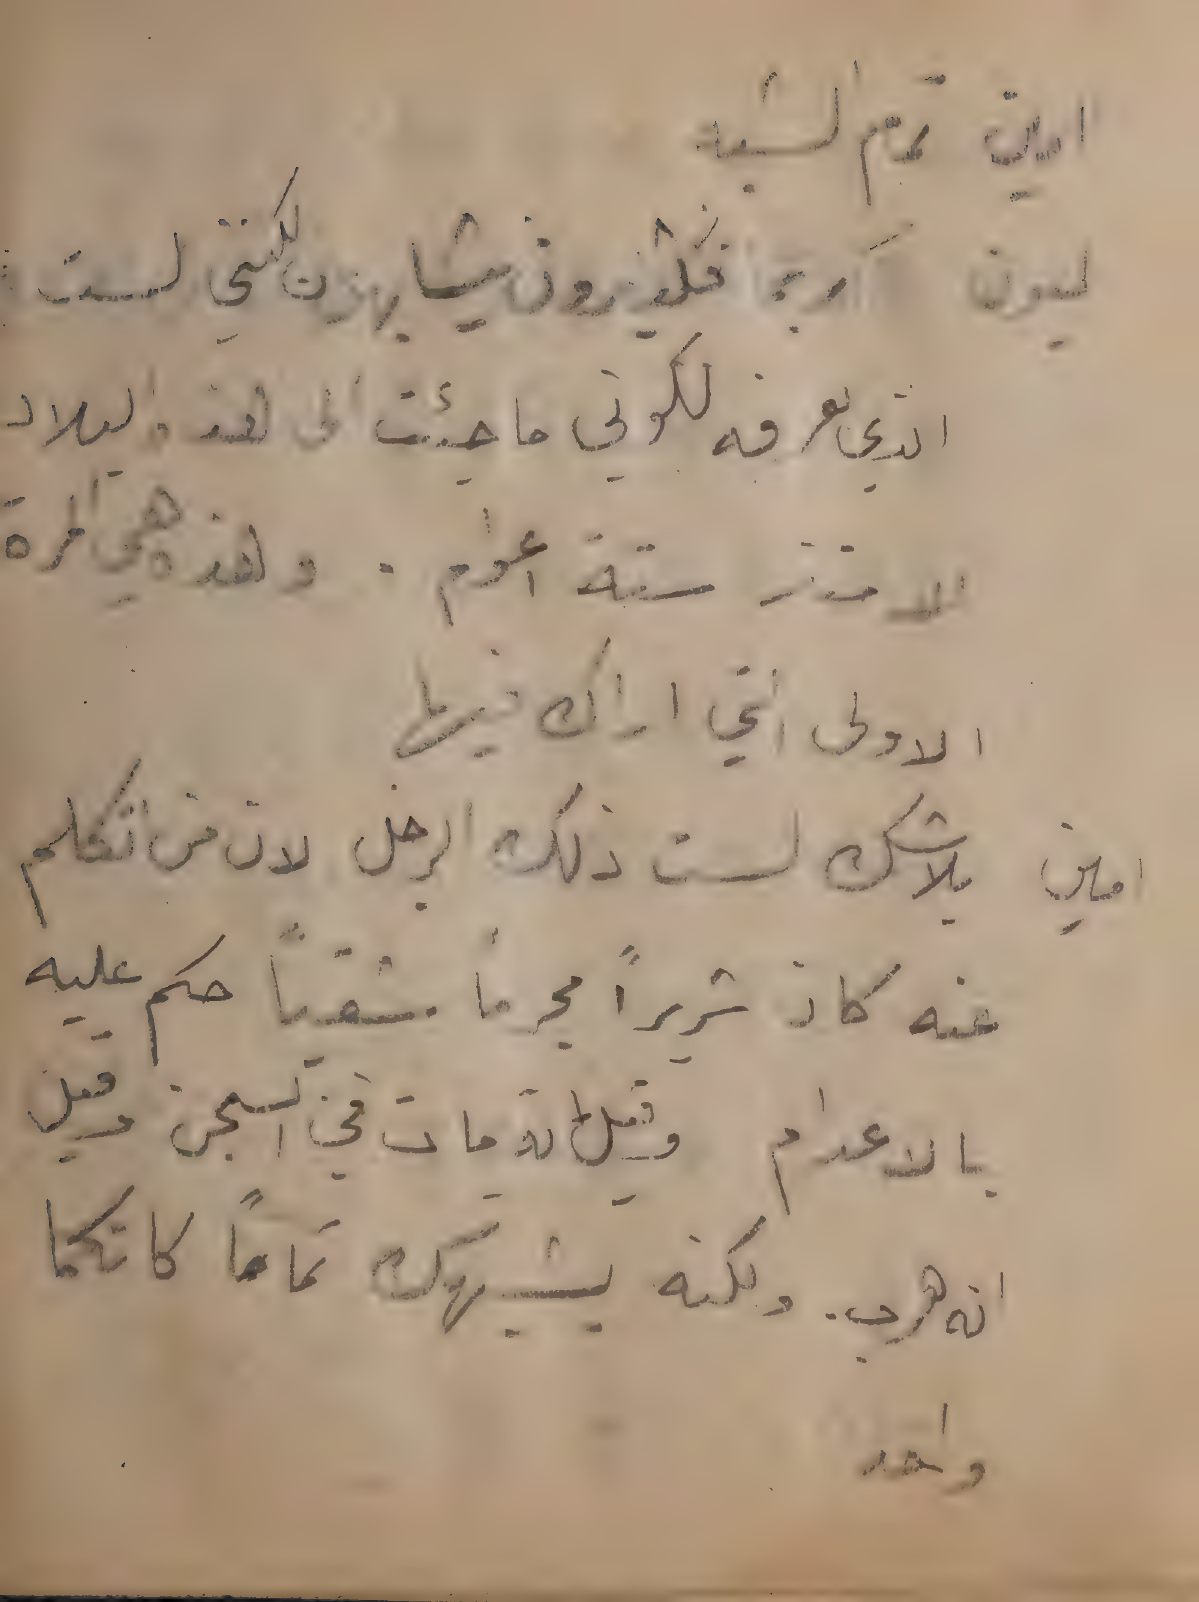 امين تمم الشبه
ليون ربما فكثيرون يتشابهون لكنني لست
الذي تعرفه لكوني ما جئت الى هذه البلاد
الا منذ ستة اعوام . وهذه هي المرة
الاولى التي اراك فيها
امين بلا شك لست ذلك الرجل لان من اتكلم
عنه كان شريراً مجرماً شقياً حكم عليه
بالاعدام وقيل انه مات في السجن وقيل
انه هرب. ولكنه يشبهك تماماً كانكما
واحد